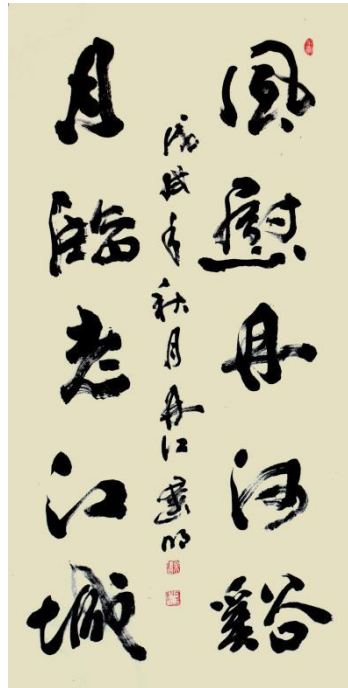 風慰丹河谿
月臨老江城
戊戌年秋月丹江建明